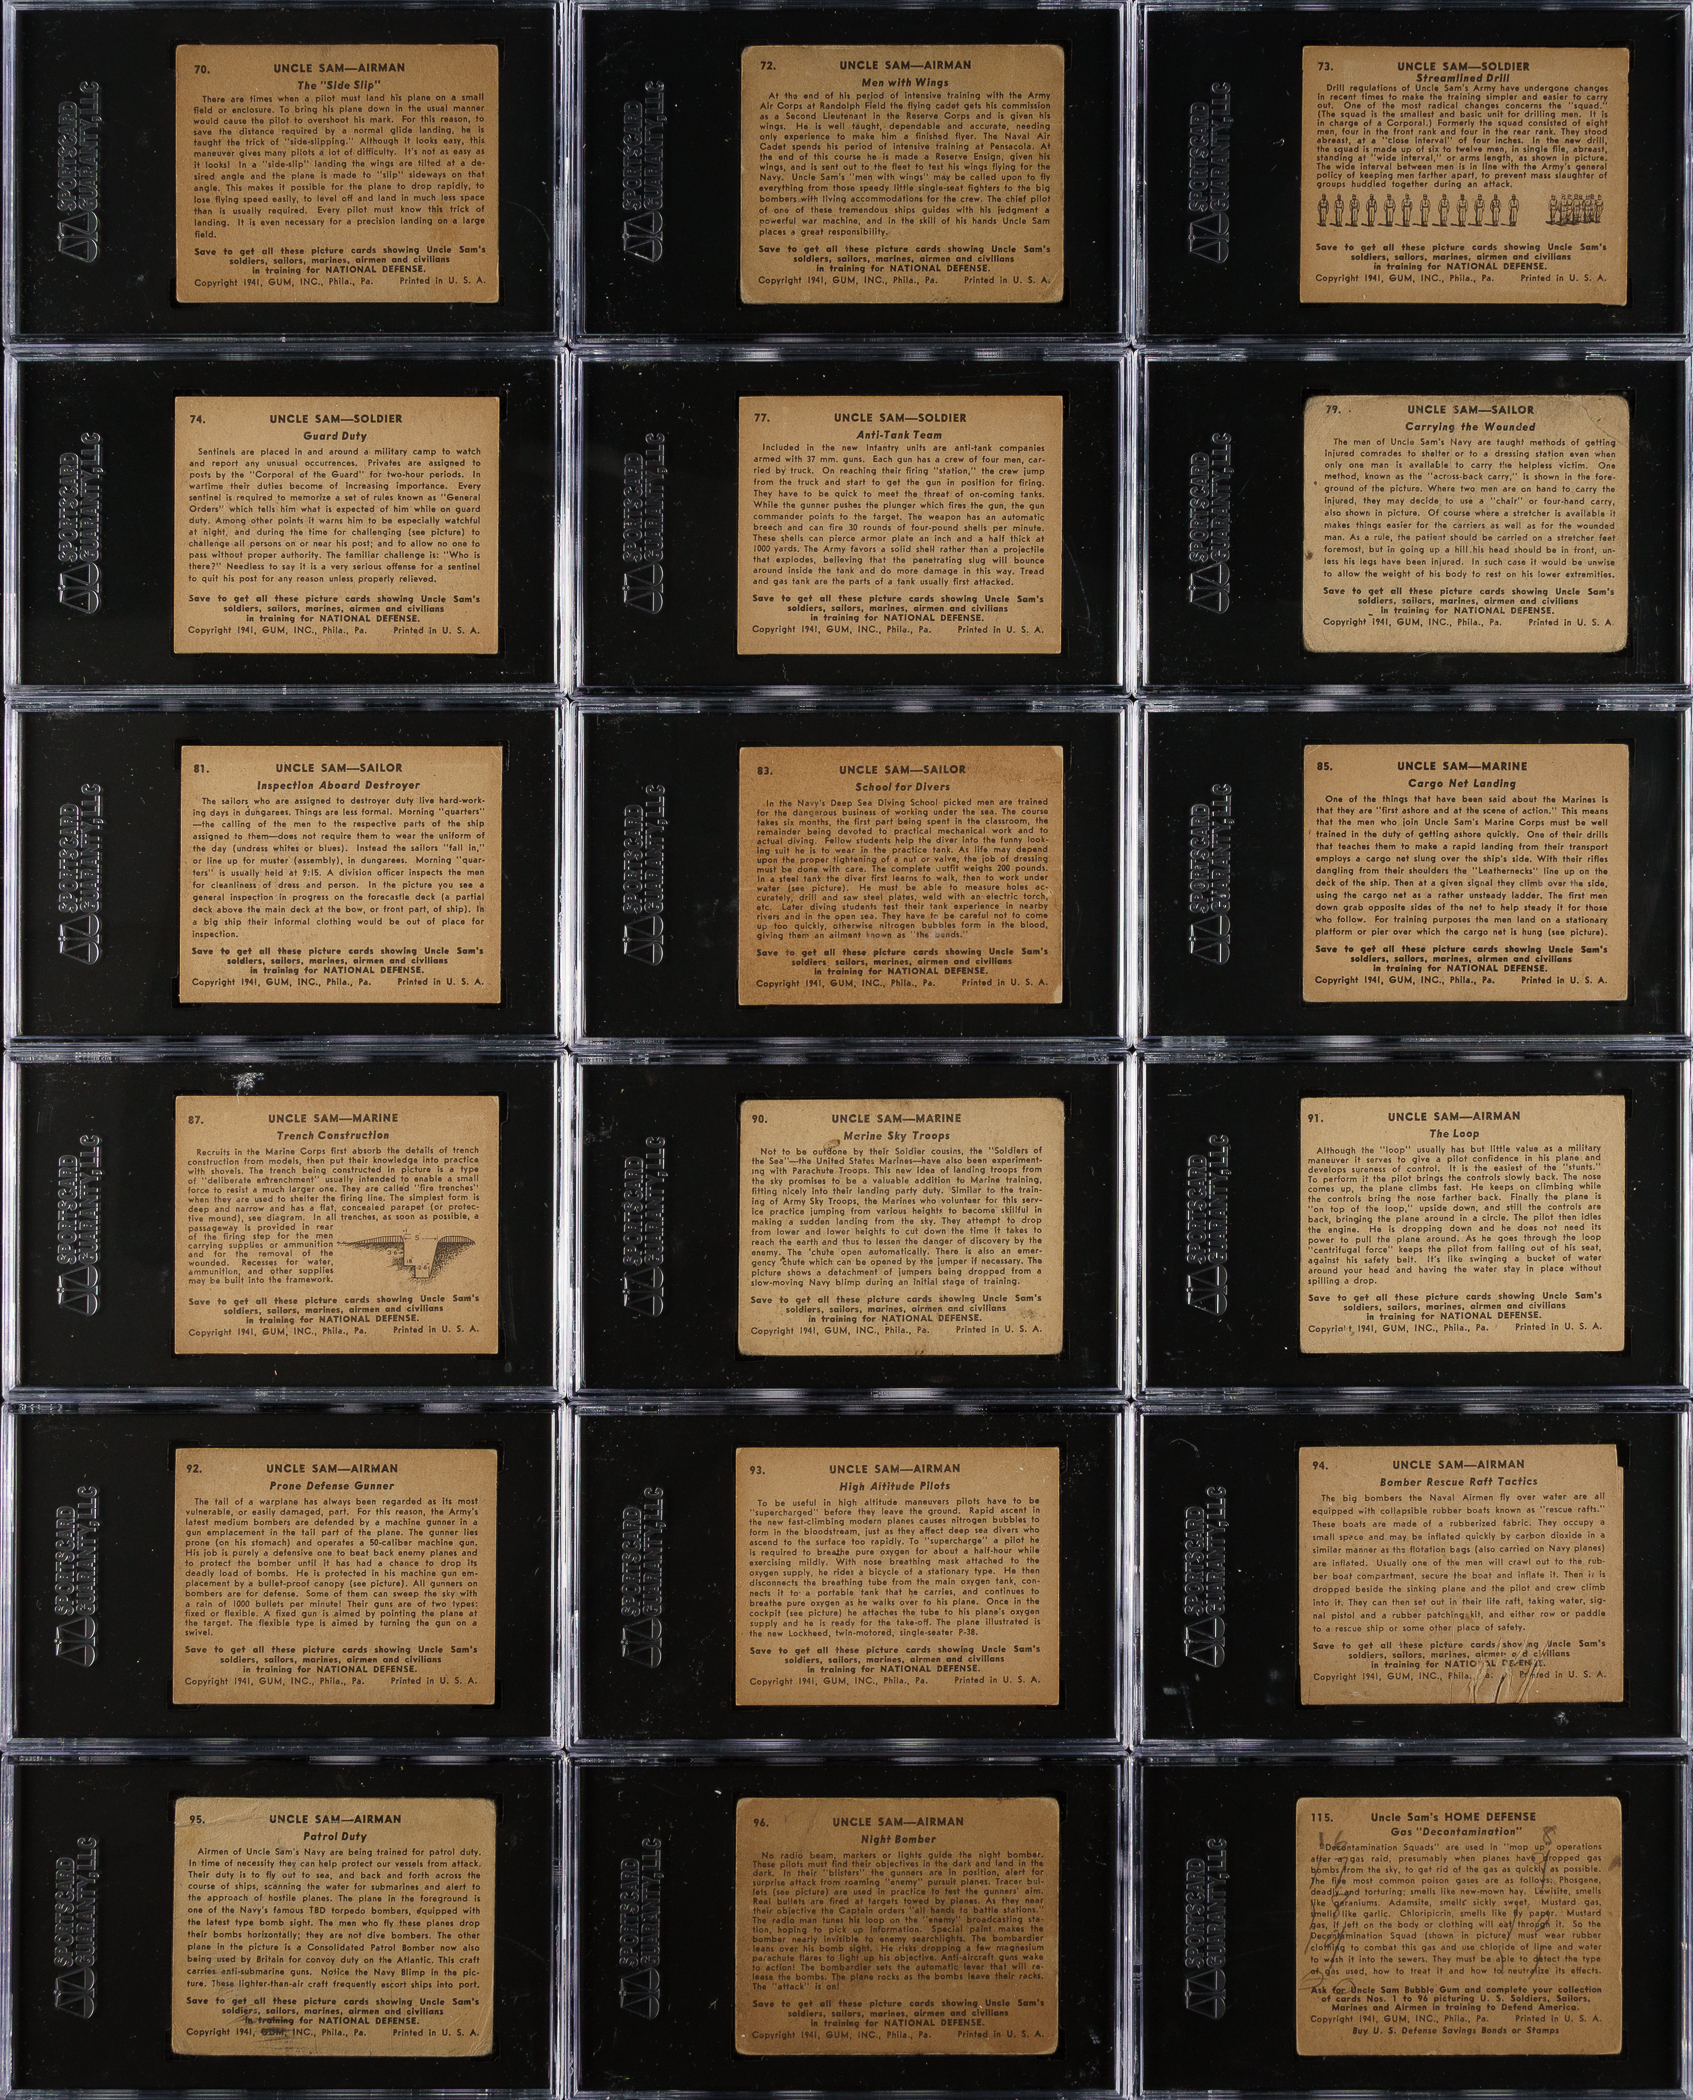 SPORTSCARD
GUARANTY, LLC
70. UNCLE SAM—AIRMAN
The "Side Slip"
There are times when a pilot must land his plane on a small
field or enclosure. To bring his plane down in the usual manner
would cause the pilot to overshoot his mark. For this reason, to
save the distance required by a normal glide landing, he is
taught the trick of "side-slipping." Although it looks easy, this
maneuver gives many pilots a lot of difficulty. It's not as easy as
it looks! In a "side-slip" landing the wings are tilted at a de-
sired angle and the plane is made to "slip" sideways on that
angle. This makes it possible for the plane to drop rapidly, to
lose flying speed easily, to level off and land in much less space
than is usually required. Every pilot must know this trick of
landing. It is even necessary for a precision landing on a large
field.
Save to get all these picture cards showing Uncle Sam's
soldiers, sailors, marines, airmen and civilians
in training for NATIONAL DEFENSE.
Copyright 1941, GUM, INC., Phila., Pa. Printed in U. S. A.
SPORTSCARD
GUARANTY, LLC
72. UNCLE SAM—AIRMAN
Men with Wings
At the end of his period of intensive training with the Army
Air Corps at Randolph Field the flying cadet gets his commission
as a Second Lieutenant in the Reserve Corps and is given his
wings. He is well taught, dependable and accurate, needing
only experience to make him a finished flyer. The Naval Air
Cadet spends his period of intensive training at Pensacola. At
the end of this course he is made a Reserve Ensign, given his
wings, and is sent out to the fleet to test his wings flying for the
Navy. Uncle Sam's "men with wings" may be called upon to fly
everything from those speedy little single-seat fighters to the big
bombers with living accommodations for the crew. The chief pilot
of one of these tremendous ships guides with his judgment a
powerful war machine, and in the skill of his hands Uncle Sam
places a great responsibility.
Save to get all these picture cards showing Uncle Sam's
soldiers, sailors, marines, airmen and civilians
in training for NATIONAL DEFENSE.
Copyright 1941, GUM, INC., Phila., Pa. Printed in U. S. A.
SPORTSCARD
GUARANTY, LLC
73. UNCLE SAM—SOLDIER
Streamlined Drill
Drill regulations of Uncle Sam's Army have undergone changes
in recent times to make the training simpler and easier to carry
out. One of the most radical changes concerns the "squad."
(The squad is the smallest and basic unit for drilling men. It is
in charge of a Corporal.) Formerly the squad consisted of eight
men, four in the front rank and four in the rear rank. They stood
abreast, at a "close interval" of four inches. In the new drill,
the squad is made up of six to twelve men, in single file, abreast,
standing at "wide interval," or arms length, as shown in picture.
The wide interval between men is in line with the Army's general
policy of keeping men farther apart, to prevent mass slaughter of
groups huddled together during an attack.
Save to get all these picture cards showing Uncle Sam's
soldiers, sailors, marines, airmen and civilians
in training for NATIONAL DEFENSE.
Copyright 1941, GUM, INC., Phila., Pa. Printed in U. S. A.
SPORTSCARD
GUARANTY, LLC
74. UNCLE SAM—SOLDIER
Guard Duty
Sentinels are placed in and around a military camp to watch
and report any unusual occurrences. Privates are assigned to
posts by the "Corporal of the Guard" for two-hour periods. In
wartime their duties become of increasing importance. Every
sentinel is required to memorize a set of rules known as "General
Orders" which tells him what is expected of him while on guard
duty. Among other points it warns him to be especially watchful
at night, and during the time for challenging (see picture) to
challenge all persons on or near his post; and to allow no one to
pass without proper authority. The familiar challenge is: "Who is
there?" Needless to say it is a very serious offense for a sentinel
to quit his post for any reason unless properly relieved.
Save to get all these picture cards showing Uncle Sam's
soldiers, sailors, marines, airmen and civilians
in training for NATIONAL DEFENSE.
Copyright 1941, GUM, INC., Phila., Pa. Printed in U. S. A.
SPORTSCARD
GUARANTY, LLC
77. UNCLE SAM—SOLDIER
Anti-Tank Team
Included in the new Infantry units are anti-tank companies
armed with 37 mm. guns. Each gun has a crew of four men, car-
ried by truck. On reaching their firing "station," the crew jump
from the truck and start to get the gun in position for firing.
They have to be quick to meet the threat of on-coming tanks.
While the gunner pushes the plunger which fires the gun, the gun
commander points to the target. The weapon has an automatic
breech and can fire 30 rounds of four-pound shells per minute.
These shells can pierce armor plate an inch and a half thick at
1000 yards. The Army favors a solid shell rather than a projectile
that explodes, believing that the penetrating slug will bounce
around inside the tank and do more damage in this way. Tread
and gas tank are the parts of a tank usually first attacked.
Save to get all these picture cards showing Uncle Sam's
soldiers, sailors, marines, airmen and civilians
in training for NATIONAL DEFENSE.
Copyright 1941, GUM, INC., Phila., Pa. Printed in U. S. A.
SPORTSCARD
GUARANTY, LLC
79. UNCLE SAM—SAILOR
Carrying the Wounded
The men of Uncle Sam's Navy are taught methods of getting
injured comrades to shelter or to a dressing station even when
only one man is available to carry the helpless victim. One
method, known as the "across-back carry," is shown in the fore-
ground of the picture. Where two men are on hand to carry the
injured, they may decide to use a "chair" or four-hand carry,
also shown in picture. Of course where a stretcher is available it
makes things easier for the carriers as well as for the wounded
man. As a rule, the patient should be carried on a stretcher feet
foremost, but in going up a hill his head should be in front, un-
less his legs have been injured. In such case it would be unwise
to allow the weight of his body to rest on his lower extremities.
Save to get all these picture cards showing Uncle Sam's
soldiers, sailors, marines, airmen and civilians
in training for NATIONAL DEFENSE.
Copyright 1941, GUM, INC., Phila., Pa. Printed in U. S. A.
SPORTSCARD
GUARANTY, LLC
81. UNCLE SAM—SAILOR
Inspection Aboard Destroyer
The sailors who are assigned to destroyer duty live hard-work-
ing days in dungarees. Things are less formal. Morning "quarters"
—the calling of the men to the respective parts of the ship
assigned to them—does not require them to wear the uniform of
the day (undress whites or blues). Instead the sailors "fall in,"
or line up for muster (assembly), in dungarees. Morning "quar-
ters" is usually held at 9:15. A division officer inspects the men
for cleanliness of dress and person. In the picture you see a
general inspection in progress on the forecastle deck (a partial
deck above the main deck at the bow, or front part, of ship). In
a big ship their informal clothing would be out of place for
inspection.
Save to get all these picture cards showing Uncle Sam's
soldiers, sailors, marines, airmen and civilians
in training for NATIONAL DEFENSE.
Copyright 1941, GUM, INC., Phila., Pa. Printed in U. S. A.
SPORTSCARD
GUARANTY, LLC
83. UNCLE SAM—SAILOR
School for Divers
In the Navy's Deep Sea Diving School picked men are trained
for the dangerous business of working under the sea. The course
takes six months, the first part being spent in the classroom, the
remainder being devoted to practical mechanical work and to
actual diving. Fellow students help the diver into the funny look-
ing suit he is to wear in the practice tank. As life may depend
upon the proper tightening of a nut or valve, the job of dressing
must be done with care. The complete outfit weighs 200 pounds.
In a steel tank the diver first learns to walk, then to work under
water (see picture). He must be able to measure holes ac-
curately, drill and saw steel plates, weld with an electric torch,
etc. Later diving students test their tank experience in nearby
rivers and in the open sea. They have to be careful not to come
up too quickly, otherwise nitrogen bubbles form in the blood,
giving them an ailment known as "the bends."
Save to get all these picture cards showing Uncle Sam's
soldiers, sailors, marines, airmen and civilians
in training for NATIONAL DEFENSE.
Copyright 1941, GUM, INC., Phila., Pa. Printed in U. S. A.
SPORTSCARD
GUARANTY, LLC
85. UNCLE SAM—MARINE
Cargo Net Landing
One of the things that have been said about the Marines is
that they are "first ashore and at the scene of action." This means
that the men who join Uncle Sam's Marine Corps must be well
trained in the duty of getting ashore quickly. One of their drills
that teaches them to make a rapid landing from their transport
employs a cargo net slung over the ship's side. With their rifles
dangling from their shoulders the "Leathernecks" line up on the
deck of the ship. Then at a given signal they climb over the side,
using the cargo net as a rather unsteady ladder. The first men
down grab opposite sides of the net to help steady it for those
who follow. For training purposes the men land on a stationary
platform or pier over which the cargo net is hung (see picture).
Save to get all these picture cards showing Uncle Sam's
soldiers, sailors, marines, airmen and civilians
in training for NATIONAL DEFENSE.
Copyright 1941, GUM, INC., Phila., Pa. Printed in U. S. A.
SPORTSCARD
GUARANTY, LLC
87. UNCLE SAM—MARINE
Trench Construction
Recruits in the Marine Corps first absorb the details of trench
construction from models, then put their knowledge into practice
with shovels. The trench being constructed in picture is a type
of "deliberate entrenchment" usually intended to enable a small
force to resist a much larger one. They are called "fire trenches"
when they are used to shelter the firing line. The simplest form is
deep and narrow and has a flat, concealed parapet (or protec-
tive mound), see diagram. In all trenches, as soon as possible, a
passageway is provided in rear
of the firing step for the men
carrying supplies or ammunition
and for the removal of the
wounded. Recesses for water,
ammunition, and other supplies
may be built into the framework.
Save to get all these picture cards showing Uncle Sam's
soldiers, sailors, marines, airmen and civilians
in training for NATIONAL DEFENSE.
Copyright 1941, GUM, INC., Phila., Pa. Printed in U. S. A.
SPORTSCARD
GUARANTY, LLC
90. UNCLE SAM—MARINE
Marine Sky Troops
Not to be outdone by their Soldier cousins, the "Soldiers of
the Sea"—the United States Marines—have also been experiment-
ing with Parachute Troops. This new idea of landing troops from
the sky promises to be a valuable addition to Marine training,
fitting nicely into their landing party duty. Similar to the train-
ing of Army Sky Troops, the Marines who volunteer for this serv-
ice practice jumping from various heights to become skillful in
making a sudden landing from the sky. They attempt to drop
from lower and lower heights to cut down the time it takes to
reach the earth and thus to lessen the danger of discovery by the
enemy. The 'chute open automatically. There is also an emer-
gency 'chute which can be opened by the jumper if necessary. The
picture shows a detachment of jumpers being dropped from a
slow-moving Navy blimp during an initial stage of training.
Save to get all these picture cards showing Uncle Sam's
soldiers, sailors, marines, airmen and civilians
in training for NATIONAL DEFENSE.
Copyright 1941, GUM, INC., Phila., Pa. Printed in U. S. A.
SPORTSCARD
GUARANTY, LLC
91. UNCLE SAM—AIRMAN
The Loop
Although the "loop" usually has but little value as a military
maneuver it serves to give a pilot confidence in his plane and
develops sureness of control. It is the easiest of the "stunts."
To perform it the pilot brings the controls slowly back. The nose
comes up, the plane climbs fast. He keeps on climbing while
the controls bring the nose farther back. Finally the plane is
"on top of the loop," upside down, and still the controls are
back, bringing the plane around in a circle. The pilot then idles
the engine. He is dropping down and he does not need its
power to pull the plane around. As he goes through the loop
"centrifugal force" keeps the pilot from falling out of his seat,
against his safety belt. It's like swinging a bucket of water
around your head and having the water stay in place without
spilling a drop.
Save to get all these picture cards showing Uncle Sam's
soldiers, sailors, marines, airmen and civilians
in training for NATIONAL DEFENSE.
Copyright, 1941, GUM, INC., Phila., Pa. Printed in U. S. A.
SPORTSCARD
GUARANTY, LLC
92. UNCLE SAM—AIRMAN
Prone Defense Gunner
The tail of a warplane has always been regarded as its most
vulnerable, or easily damaged, part. For this reason, the Army's
latest medium bombers are defended by a machine gunner in a
gun emplacement in the tail part of the plane. The gunner lies
prone (on his stomach) and operates a 50-caliber machine gun.
His job is purely a defensive one to beat back enemy planes and
to protect the bomber until it has had a chance to drop its
deadly load of bombs. He is protected in his machine gun em-
placement by a bullet-proof canopy (see picture). All gunners on
bombers are for defense. Some of them can sweep the sky with
a rain of 1000 bullets per minute! Their guns are of two types:
fixed or flexible. A fixed gun is aimed by pointing the plane at
the target. The flexible type is aimed by turning the gun on a
swivel.
Save to get all these picture cards showing Uncle Sam's
soldiers, sailors, marines, airmen and civilians
in training for NATIONAL DEFENSE.
Copyright 1941, GUM, INC., Phila., Pa. Printed in U. S. A.
SPORTSCARD
GUARANTY, LLC
93. UNCLE SAM—AIRMAN
High Altitude Pilots
To be useful in high altitude maneuvers pilots have to be
"supercharged" before they leave the ground. Rapid ascent in
the new fast-climbing modern planes causes nitrogen bubbles to
form in the bloodstream, just as they affect deep sea divers who
ascend to the surface too rapidly. To "supercharge" a pilot he
is required to breathe pure oxygen for about a half-hour while
exercising mildly. With nose breathing mask attached to the
oxygen supply, he rides a bicycle of a stationary type. He then
disconnects the breathing tube from the main oxygen tank, con-
nects it to a portable tank that he carries, and continues to
breathe pure oxygen as he walks over to his plane. Once in the
cockpit (see picture) he attaches the tube to his plane's oxygen
supply and he is ready for the take-off. The plane illustrated is
the new Lockheed, twin-motored, single-seater P-38.
Save to get all these picture cards showing Uncle Sam's
soldiers, sailors, marines, airmen and civilians
in training for NATIONAL DEFENSE.
Copyright 1941, GUM, INC., Phila., Pa. Printed in U. S. A.
SPORTSCARD
GUARANTY, LLC
94. UNCLE SAM—AIRMAN
Bomber Rescue Raft Tactics
The big bombers the Naval Airmen fly over water are all
equipped with collapsible rubber boats known as "rescue rafts."
These boats are made of a rubberized fabric. They occupy a
small space and may be inflated quickly by carbon dioxide in a
similar manner as the flotation bags (also carried on Navy planes)
are inflated. Usually one of the men will crawl out to the rub-
ber boat compartment, secure the boat and inflate it. Then it is
dropped beside the sinking plane and the pilot and crew climb
into it. They can then set out in their life raft, taking water, sig-
nal pistol and a rubber patching kit, and either row or paddle
to a rescue ship or some other place of safety.
Save to get all these picture cards showing Uncle Sam's
soldiers, sailors, marines, airmen and civilians
in training for NATIONAL DEFENSE.
Copyright 1941, GUM, INC., Phila., Pa. Printed in U. S. A.
SPORTSCARD
GUARANTY, LLC
95. UNCLE SAM—AIRMAN
Patrol Duty
Airmen of Uncle Sam's Navy are being trained for patrol duty.
In time of necessity they can help protect our vessels from attack.
Their duty is to fly out to sea, and back and forth across the
course of ships, scanning the water for submarines and alert to
the approach of hostile planes. The plane in the foreground is
one of the Navy's famous TBD torpedo bombers, equipped with
the latest type bomb sight. The men who fly these planes drop
their bombs horizontally; they are not dive bombers. The other
plane in the picture is a Consolidated Patrol Bomber now also
being used by Britain for convoy duty on the Atlantic. This craft
carries anti-submarine guns. Notice the Navy Blimp in the pic-
ture. These lighter-than-air craft frequently escort ships into port.
Save to get all these picture cards showing Uncle Sam's
soldiers, sailors, marines, airmen and civilians
in training for NATIONAL DEFENSE.
Copyright 1941, GUM, INC., Phila., Pa. Printed in U. S. A.
SPORTSCARD
GUARANTY, LLC
96. UNCLE SAM—AIRMAN
Night Bomber
No radio beam, markers or lights guide the night bomber.
These pilots must find their objectives in the dark and land in the
dark. In their "blisters" the gunners are in position, alert for
surprise attack from roaming "enemy" pursuit planes. Tracer bul-
lets (see picture) are used in practice to test the gunners' aim.
Real bullets are fired at targets towed by planes. As they near
their objective the Captain orders "all hands to battle stations."
The radio man tunes his loop on the "enemy" broadcasting sta-
tion, hoping to pick up information. Special paint makes the
bomber nearly invisible to enemy searchlights. The bombardier
leans over his bomb sight. He risks dropping a few magnesium
parachute flares to light up his objective. Anti-aircraft guns wake
to action! The bombardier sets the automatic lever that will re-
lease the bombs. The plane rocks as the bombs leave their racks.
The "attack" is on!
Save to get all these picture cards showing Uncle Sam's
soldiers, sailors, marines, airmen and civilians
in training for NATIONAL DEFENSE.
Copyright 1941, GUM, INC., Phila., Pa. Printed in U. S. A.
SPORTSCARD
GUARANTY, LLC
115. Uncle Sam's HOME DEFENSE
Gas "Decontamination"
16 8
"Decontamination Squads" are used in "mop up" operations
after a gas raid, presumably when planes have dropped gas
bombs from the sky, to get rid of the gas as quickly as possible.
The five most common poison gases are as follows: Phosgene,
deadly and torturing; smells like new-mown hay. Lewisite, smells
like geraniums. Adamsite, smells sickly sweet. Mustard gas,
smells like garlic. Chloripicrin, smells like fly paper. Mustard
gas, if left on the body or clothing will eat through it. So the
Decontamination Squad (shown in picture) must wear rubber
clothing to combat this gas and use chloride of lime and water
to wash it into the sewers. They must be able to detect the type
of gas used, how to treat it and how to neutralize its effects.
Ask for Uncle Sam Bubble Gum and complete your collection
of cards Nos. 1 to 96 picturing U. S. Soldiers, Sailors,
Marines and Airmen in training to Defend America.
Copyright 1941, GUM, INC., Phila., Pa. Printed in U. S. A.
Buy U. S. Defense Savings Bonds or Stamps